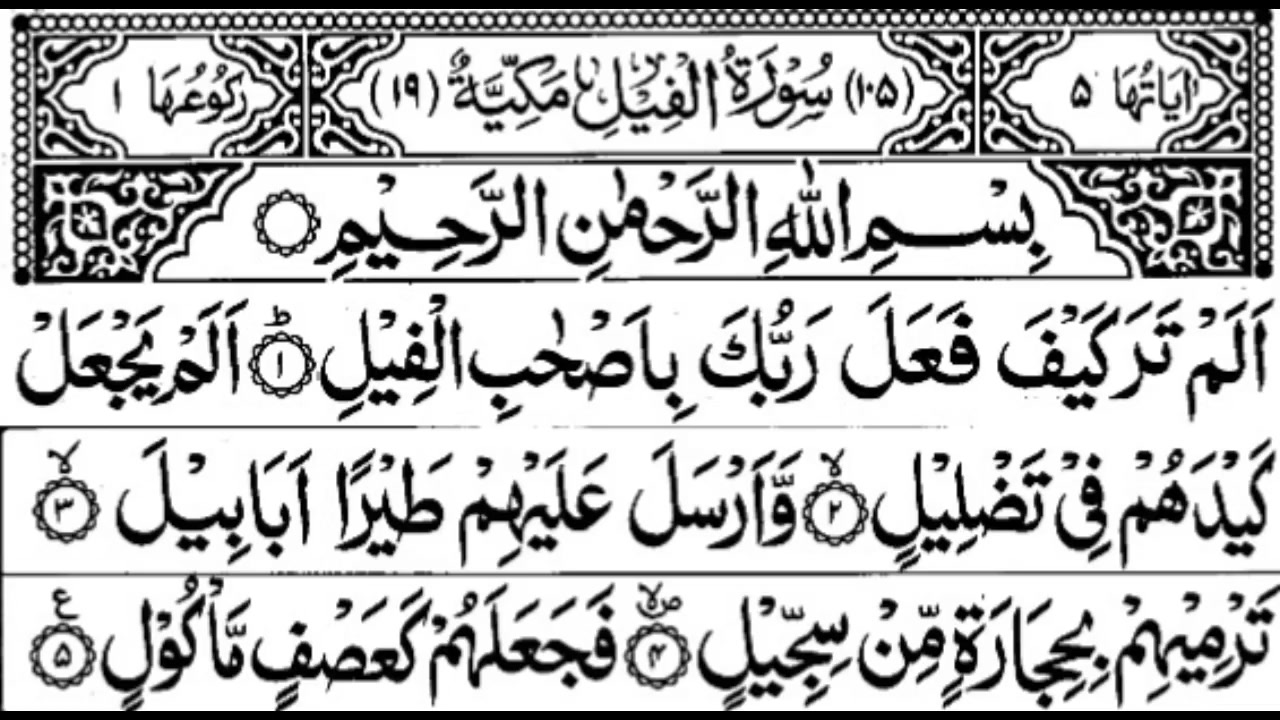 اٰيَاتُهَا ۵ (۱۰۵) سُوْرَةُ الْفِيْلِ مَكِّيَّةٌ (۱۹) رُكُوْعُهَا ۱
بِسْمِ اللّٰهِ الرَّحْمٰنِ الرَّحِيْمِ
اَلَمْ تَرَ كَيْفَ فَعَلَ رَبُّكَ بِاَصْحٰبِ الْفِيْلِ ؕ ۱ اَلَمْ يَجْعَلْ
كَيْدَهُمْ فِيْ تَضْلِيْلٍ ۙ ۲ وَّاَرْسَلَ عَلَيْهِمْ طَيْرًا اَبَابِيْلَ ۙ ۳
تَرْمِيْهِمْ بِحِجَارَةٍ مِّنْ سِجِّيْلٍ ۪ۙ ۴ فَجَعَلَهُمْ كَعَصْفٍ مَّاْكُوْلٍ ع ۵